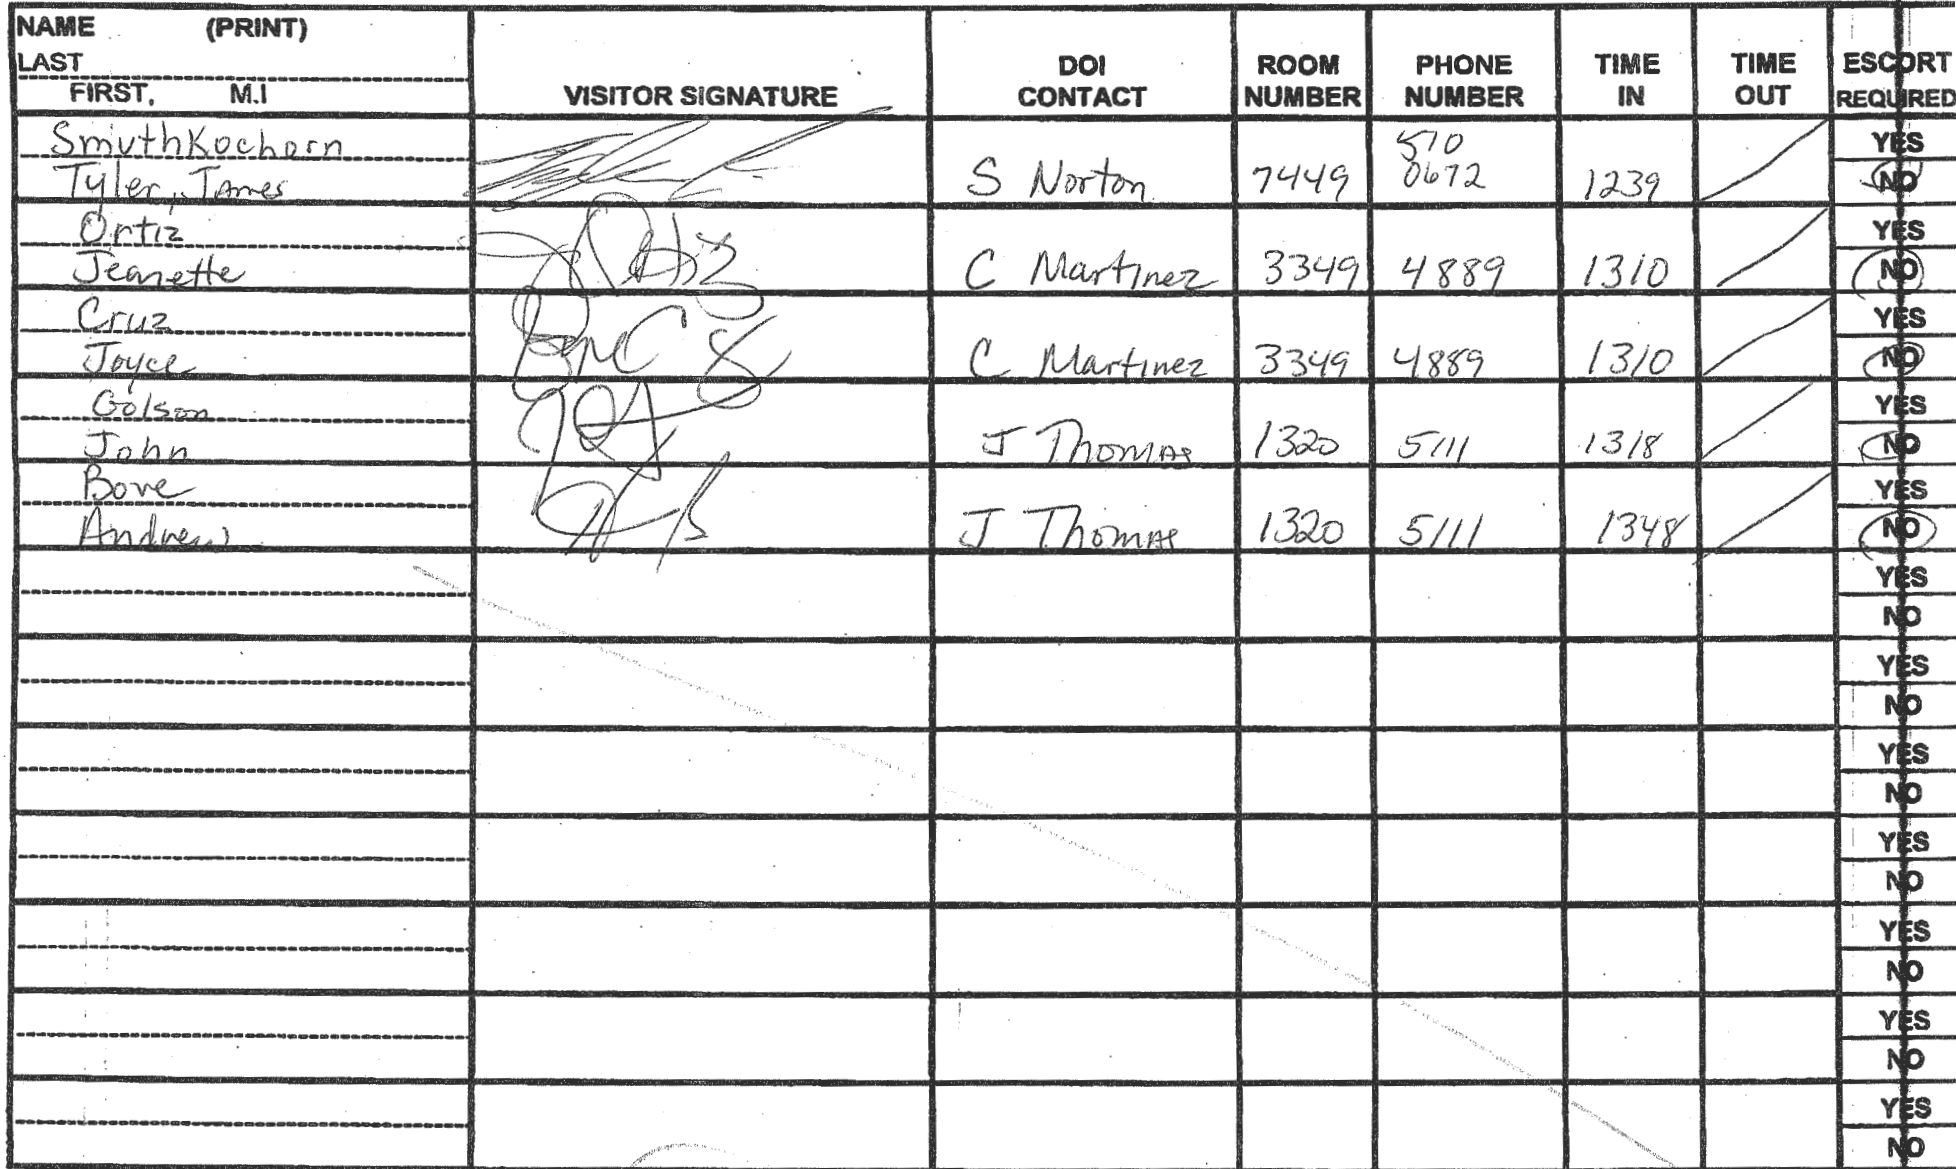 NAME (PRINT)
LAST
FIRST, M.I
VISITOR SIGNATURE
DOI
CONTACT
ROOM
NUMBER
PHONE
NUMBER
TIME
IN
TIME
OUT
ESCORT
REQUIRED
SmuthKochorn
Tyler, James
S Norton
7449
570
0672
1239
YES
NO
Ortiz
Jeanette
C Martinez
3349
4889
1310
YES
NO
Cruz
Joyce
C Martinez
3349
4889
1310
YES
NO
Golson
John
J Thomas
1320
5111
1318
YES
NO
Bove
Andrew
J Thomas
1320
5111
1348
YES
NO
YES
NO
YES
NO
YES
NO
YES
NO
YES
NO
YES
NO
YES
NO